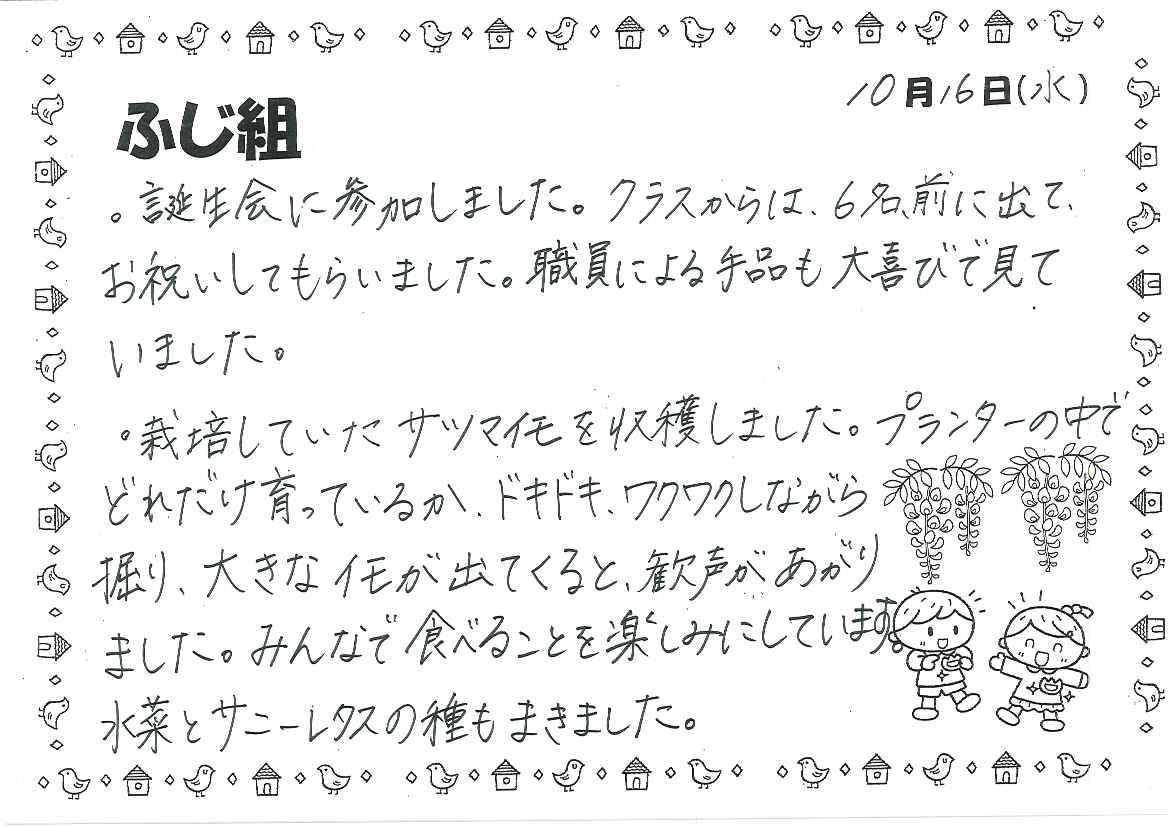 10月16日(水)
ふじ組
。誕生会に参加しました。クラスからは、6名、前に出て、
お祝いしてもらいました。職員による手品も大喜びで見て
いました。
。栽培していたサツマイモを収穫しました。プランターの中で
どれだけ育っているか、ドキドキ、ワクワクしながら
掘り、大きなイモが出てくると、歓声があがり
ました。みんなで食べることを楽しみにしています。
水菜とサニーレタスの種もまきました。